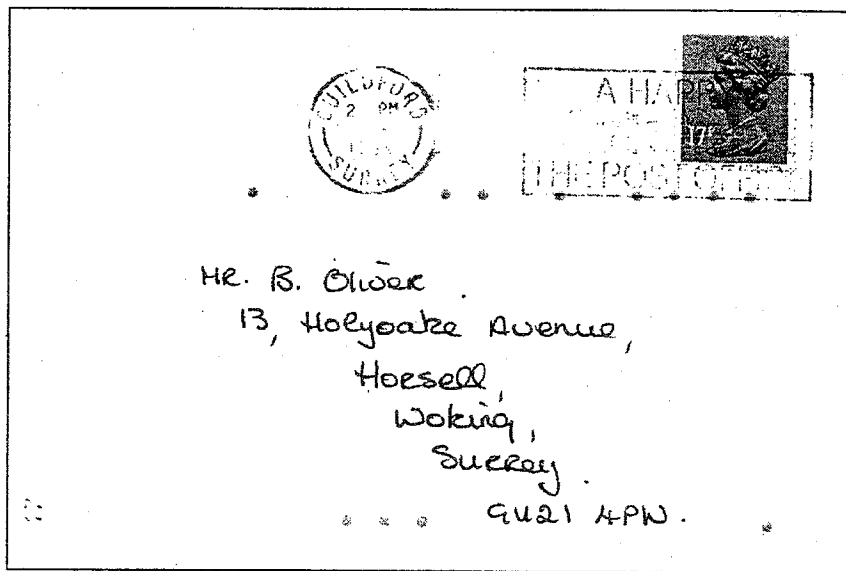 GUILDFORD
2 PM
SURREY
A HAPPY
17
THE POST OFFICE
MR. B. Oliver.
13, Holyoake Avenue,
Horsell,
Woking,
Surrey.
GU21 4PW.